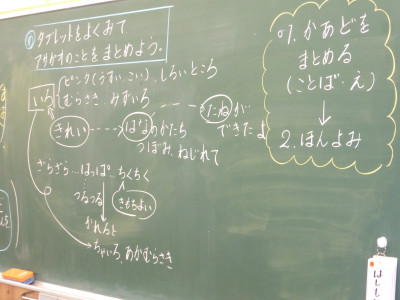 タブレットをよくみて
アサガオのことをまとめよう。
いろ
ピンク(うすい・こい)、しろいところ
むらさき、みずいろ
きれい
はな
かたち
つぼみ、ねじれて
たねが
できたよ
ざらざら…はっぱ…ちくちく
つるつる
きもちよい
かれると
ちゃいろ、あかむらさき
1.かあどを
まとめる
(ことば・え)
↓
2.ほんよみ